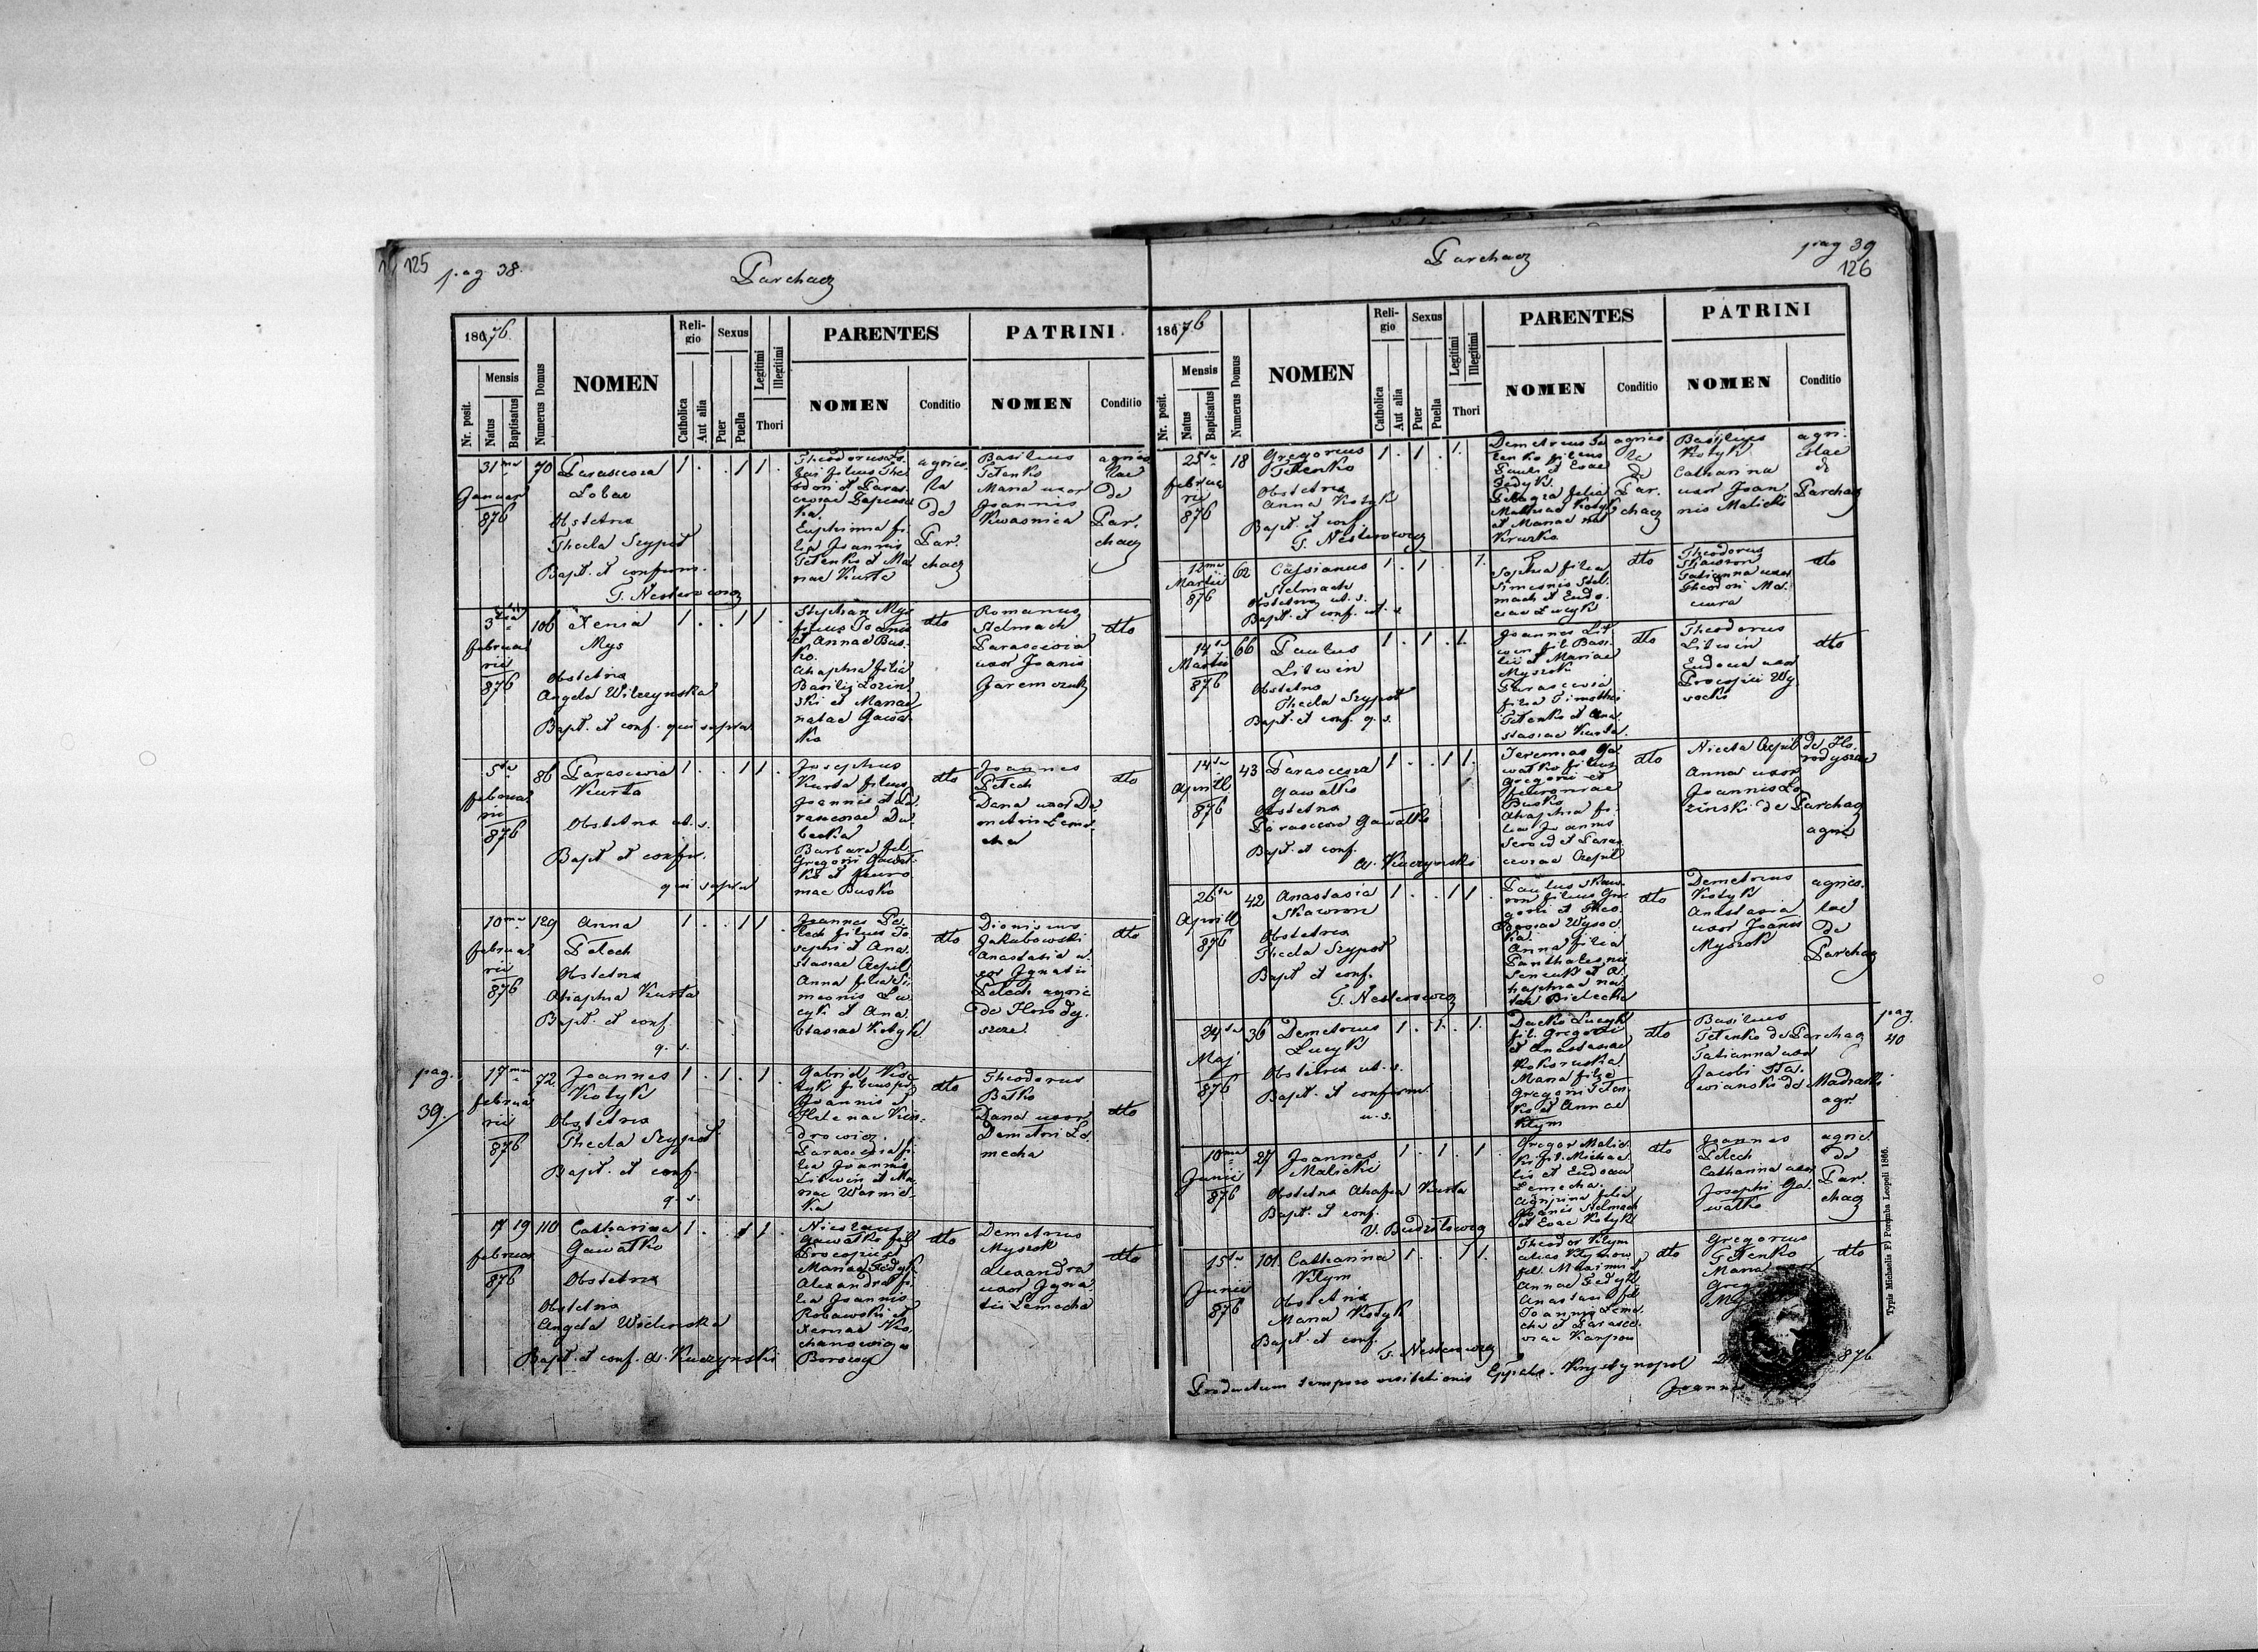 125
pag 38.
Parchacz
1876.
Nr. posit.
Mensis
Natus
Baptisatus
Numerus Domus
NOMEN
Reli-
gio
Catholica
Aut alia
Sexus
Puer
Puella
Legitimi
Illegitimi
Thori
PARENTES
NOMEN
Conditio
PATRINI
NOMEN
Conditio
31ma
Januar
876
70
Parascevia
Lobac
Obstetrix
Thecla Szypot
Bapt. et confirm.
T. Nesterowicz
1 . . 1 1 .
Theodorus Lo-
bac filius The
odori et Paras-
ceviae
Euphrima fi-
lia Joannis
Tetenko et Ma
riae Kurta
agrico
la
de
Par.
chacz
Basilius
Tetenko
Maria uxor
Joannis
Kwasnica
agrico
lae
de
Par.
chacz
3tia
februa
rii
876
106
Xenia
Mys
Obstetrix
Angela Wilczynska
Bapt. et conf. qui supra
1 . . 1 1 .
Stephan Mys
filius Joannis
et Annae Bus-
ko.
Ahaphia filia
Basilii Lozin
ski et Mariae
natae Gawat
ko
dto
Romanus
Stelmach
Parascevia
uxor Joanis
Jaremczuk
dto
5ta
februa
rii
876
86
Parascevia
Kurta
Obstetrix ut. s.
Bapt et confir.
qui supra
1 . . 1 1 .
Josephus
Kurta filius
Joannis et Pa-
rasceviae Du-
becka
Barbara fil
Gregorii Gawat-
ko et feuro
niae Busko
dto
Joannes
Pelech
Dana uxor De
metrii Leme-
cha
dto
10ma
februa
rii
876
129
Anna
Pelech
Obstetrix
Ahaphia Kurta
Bapt. et conf.
q. s.
1 . . 1 1 .
Joannes Pe-
lech filius Jo
sephi et Ana
stasiae Czepil
Anna filia Si
meonis Lu-
cyk et Ana
stasiae Kotyk
dto
Dionisius
Jakubowski
Anastasia u-
xor Ignatii
Pelech agric
de Horody-
szcze
dto
pag.
39.
17ma
februa
rii
876
72.
Joannes
Kotyk
Obstetrix
Thecla Szypot
Bapt. et conf.
q. s.
1 . 1 . 1 .
Gabriel Ko-
tyk filius
Joannis et
Helenae
drowicz.
Parascevia fi-
lia Joannis
Litwin et Ma
riae Warnic-
ka
dto
Theodorus
Batko
Dana uxor
Demetrii Le-
mecha
dto
17 19
februar
876
110
Catharina
Gawatko
Obstetrix
Obstetrix
Angela Wilczynska
Bapt. et conf. A. Kuczynski
1 . . 1 1 .
Nicolaus
Gawatko fil
Procopii et
Mariae Fedyk
Alexandra fi-
lia Joannis
Xeniae
dto
Demetrius
Myszok
Alexandra
uxor Igna
tii Lemecha
dto
Parchacz
pag 39
126
1876
Nr. posit.
Mensis
Natus
Baptisatus
Numerus Domus
NOMEN
Reli-
gio
Catholica
Aut alia
Sexus
Puer
Puella
Legitimi
Illegitimi
Thori
PARENTES
NOMEN
Conditio
PATRINI
NOMEN
Conditio
25ta
februa
rii
876
18
Gregorius
Tetenko
Obstetrix
Anna Kotyk
Bapt. et conf.
T. Nesterowicz
1 . 1 . 1.
Demetrius Te
tenko filius
Pauli et Evae
Fedyk.
Pelagia filia
Mathiae Kotyk
et Mariae
Kruzko
agrico
la
de
Par.
chacz
Basilius
Kotyk
Catharina
uxor Joan
nis Malicki
agri-
colae
de
Parchacz
12ma
Martii
876
62
Cassianus
Stelmach
Obstetrix ut. s.
Bapt. et conf. ut. s
1 . 1 . 1.
Sophia filia
Simeonis Stel-
mach et Eudo-
ciae Lucyk
dto
Theodorus
Skawron
Tatianna uxor
Theodori Ma-
ciura
dto
14ta
Martii
876
66
Paulus
Litwin
Obstetrix
Thecla Szypot
Bapt. et conf. q. s.
1 . 1 . 1.
Joannes Lit
win fil Basi
lii et Mariae
Myszok
Parascevia
filia Timothei
Tetenko et Ana
stasiae Kurta.
dto
Theodorus
Litwin
Eudocia uxor
Procopii Wy
socki
dto
14ta
Aprill
876
43
Parascevia
Gawatko
Obstetrix
Parascevia Gawatko
Bapt. et conf.
A. Kuczynski
1 . . 1 1.
Jeremias Ga
watko filius
Gregorii et
feuroniae
Busko
Ahaphia fi-
lia Joannis
et Paras
ceviae Czepil
dto
Niceta Czepil de Ho-
rodyszcze
Anna uxor
Joannis Lo
zinski de Parchacz
agric
26ta
Aprill
876
42
Anastasia
Skawron
Obstetrix
Thecla Szypot
Bapt et conf.
T. Nesterowicz
1 . . 1 1 .
Paulus Skaw-
ron filius Gre
gorii et Theo
dosiae Wysoc
ka.
Anna filia
Panthaleonis
Senczuk et A-
haphiae na
tae Bielecka
dto
Demetrius
Kotyk
Anastasia
uxor Joanis
Myszok
agrico-
lae
de
Parchacz
24ta
Maj
876
36
Demetrius
Lucyk
Obstetrix ut. s.
Bapt. et confirm.
u. s.
1 . 1. . 1.
Dacko Lucyk
fil. Gregorii
et Anastasiae
Kokoruska
Maria filia
Gregorii Teten-
ko et Annae
Klym
dto
Basilius
Tetenko de Parchacz
Tatianna uxor
Jacobi Sta-
wianski de Madzarki
agr.
pag.
40
10ma
Junii
876
27
Joannes
Malicki
Obstetrix Ahafia Kurta
Bapt. et conf.
V. Budzilowicz
1 . 1 . 1 .
Gregor Malic-
ki fil. Michae
lis et Eudociae
Lemecha.
Agripina filia
Joanis Stelmach
et Evae Kotyk
dto
Joannes
Pelech
Catharina uxor
Josephi Ga-
watko
agric.
de
Par.
chacz
15ta
Junii
876
101.
Catharina
Klym
Obstetrix
Maria Kotyk
Bapt. et conf.
T. Nesterowicz
1 . . 1 1.
Theodor Klym
alias Klymow
fil. Maximi et
Annae Fedyk
Anastasia fil
Joannis Leme-
cha et Parasce-
viae Karpow
dto
Gregorius
Tetenko
Maria uxor
dto
Productum tempore visitationis Eppalis. Krystynopol 876
Typis Michaelis F. Poremba Leopoli 1866.